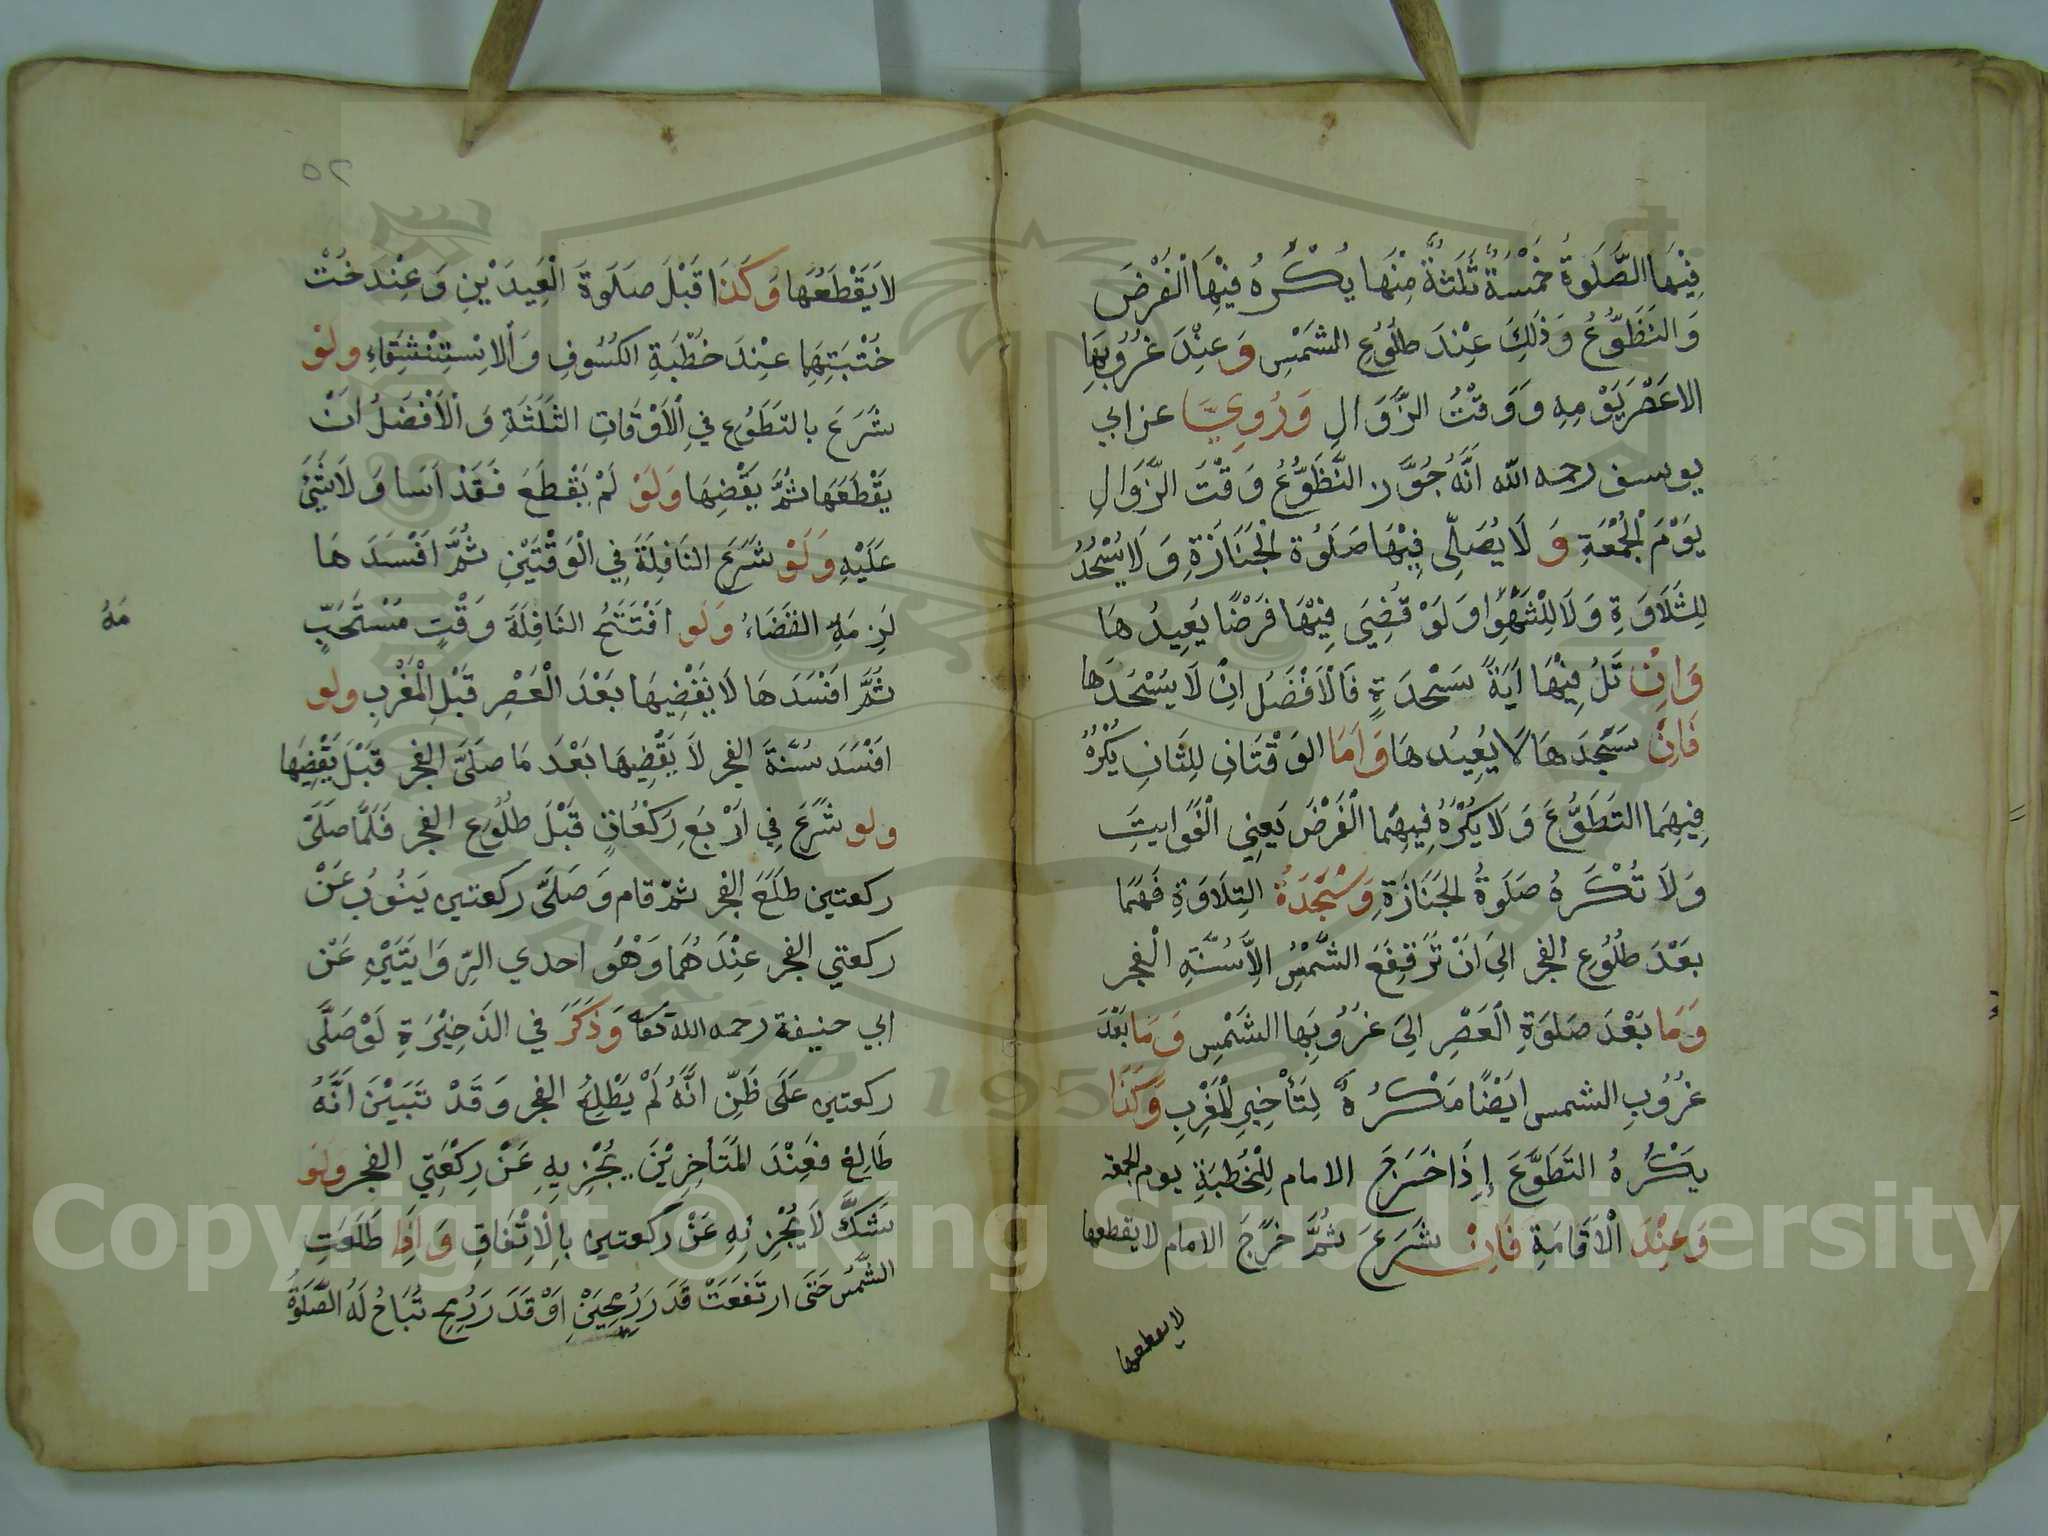 فِيْهَا الصَّلَوةُ خَمْسَةٌ ثَلَثَةٌ مِنْهَا يُكْرَهُ فِيْهَا الْفَرْضَ
وَالتَطَوُّعُ وَذَلِكَ عِنْدَ طُلُوْعِ الشَمْسِ وَعِنْدَ غُرُوْبِهَا
الا عَصْرَ يَوْمِهِ وَوَقْتُ الزَّوَالِ وَرُوِيَّا عن ابي
يوسف رحمه الله انَّهُ جُوَّز التَّطَوُّعُ وَقْتَ الزَّوَالِ
يَوْمَ الْجُمُعَةِ وَ لَا يُصَلِّى فِيْهَا صَلَوُة الْجَنَازَةِ وَلَا يُسْجُدُ
لِلتَلَاوَةِ وَلَا لِلْسَّهْوِ وَلَوْ قُضِيَ فِيْهَا فَرْضًا يُعِيْدُ هَا
وَانْ تَلُ فِيْهَا آيَةً سَجْدَةٍ فَالْافْضَلُ انْ لَا يَسْجُدَهَا
فَانْ سَجَدَ هَا لَا يُعِيْدهَا وَامَا الوَقْتَانِ لِلثَانِ يُكْرَهُ
فِيْهِمَا التَطَوُّعَ وَلَا يُكْرَهُ فِيهِمَا الْفَرْضَ يَعِنِي الْفَوَايتَ
وَلَا تُكْرَهُ صَلَوةُ الْجَنَازَةِ وَسَجْدَةُ التِلَاوَةِ فَهُمَا
بَعْدَ طُلُوْعِ الفجر الِىَ انْ تَرَفِفَعَ الشَّمْسُ الِاَّ سُنَّةِ الْفجر
وَمَا بَعْدَ صَلَوَةِ الْعَصْرِ الِىَ غُرُوْبِهَا الشَمْسِ وَمَا بَعْدَ
غُرُوْبِ الشمس ايَضًا مَكْرُهٌ لِتَأْخِيْرِ الْمَغْرِبِ وَكَذَا
يَكْرُهُ التَطَوُّعَ إِذَا خَرَجَ الامام لِلْخُطبَةِ يوم الجمعة
وَعِنْدَ الْاقَامَةِ فَانْ شَرَعَ ثُمَّ خَرَجَ الامام لا يقطعها
لا يقطعها
٥٢
لَا يَقْطَعُهَا وَكَذَا قَبْلَ صَلَوةَ الْعِيدَيْنِ وَعِنْدَ خُتْ
خُتْبَتِهِمَا عِنْدَ خُطْبَةِ الكُسُوفِ وَالاسْتِنْشِقَاءِ ولو
شَرَعَ بالتَطَوُعِ فيِ الْاوْقَاتِ الثَلَثَةِ وَالْافْضَلُ انْ
يَقْطَعَهَا ثُمَّ يَقْضِهَا وَلَوْ لَمْ يَقْطَعَ فَقَدْ اسَا وَلَا شَئَ
عَلَيْهِ وَلَوْ شَرَعَ النَافِلَةَ فِي الْوَقْتَيْنِ ثُمَّ افْسَدَ هَا
لَزِمَهُ القَضَاءُ وَلَو افْتَتَحُ النَافِلَةَ وَقْتٍ مُسْتَحَبٍّ
مَهُ
ثُمَّ افْسَدَهَا لَا يَقْضِيْهَا بَعْدَ الْعَصْرِ قَبْلِ الْمَغْرِبِ ولو
افْسَدَ سُنَّةَ الفجر لَا يَقْضِهَا بَعْدَ مَا صَلَىَّ الفَجر قَبْلَ يَقْضِهَا
ولو شَرَعَ فِي ارْبَعِ رَكَعَاتٍ قَبْلَ طُلُوعِ الفجر فَلَمَّا صَلَىَّ
ركعتين طَلَعَ الفجر ثمّ قام وَصَلَىَّ ركعتين يَنُوْبُ عَنْ
ركعتي الفجر عِنْدَهُمَا وَهُوَ احدي الرِّوَايَتَيْنِ عَنْ
ابي حنيفة رحمه الله تعالى وَذَكَرَ في الذَخِيْرَةِ لَوْ صَلَّى
ركعتين عَلَى ظَنِّ انَّهُ لَمْ يَطْلِعُ الفجر وَقَدْ تَبَيْنَ انَّهُ
طَالِع فَعِنْدَ الْمَتَأخِرِيْنَ يُجْزِيهِ عَنْ رِكْعَتِي الفجر وَلَو
شَكَّ لَا يُجْزِيهِ عَنْ ركعتين بِالْاتِفَاقِ وَاذَا طَلَعَتِ
الشَّمْسُ حَتَى ارتَفَعَتْ قَدَ رَرُمْحِيَنْ اوْ قَدَ رَرُمِحٍ تُبَاحُ لَهُ الصَّلَوةُ